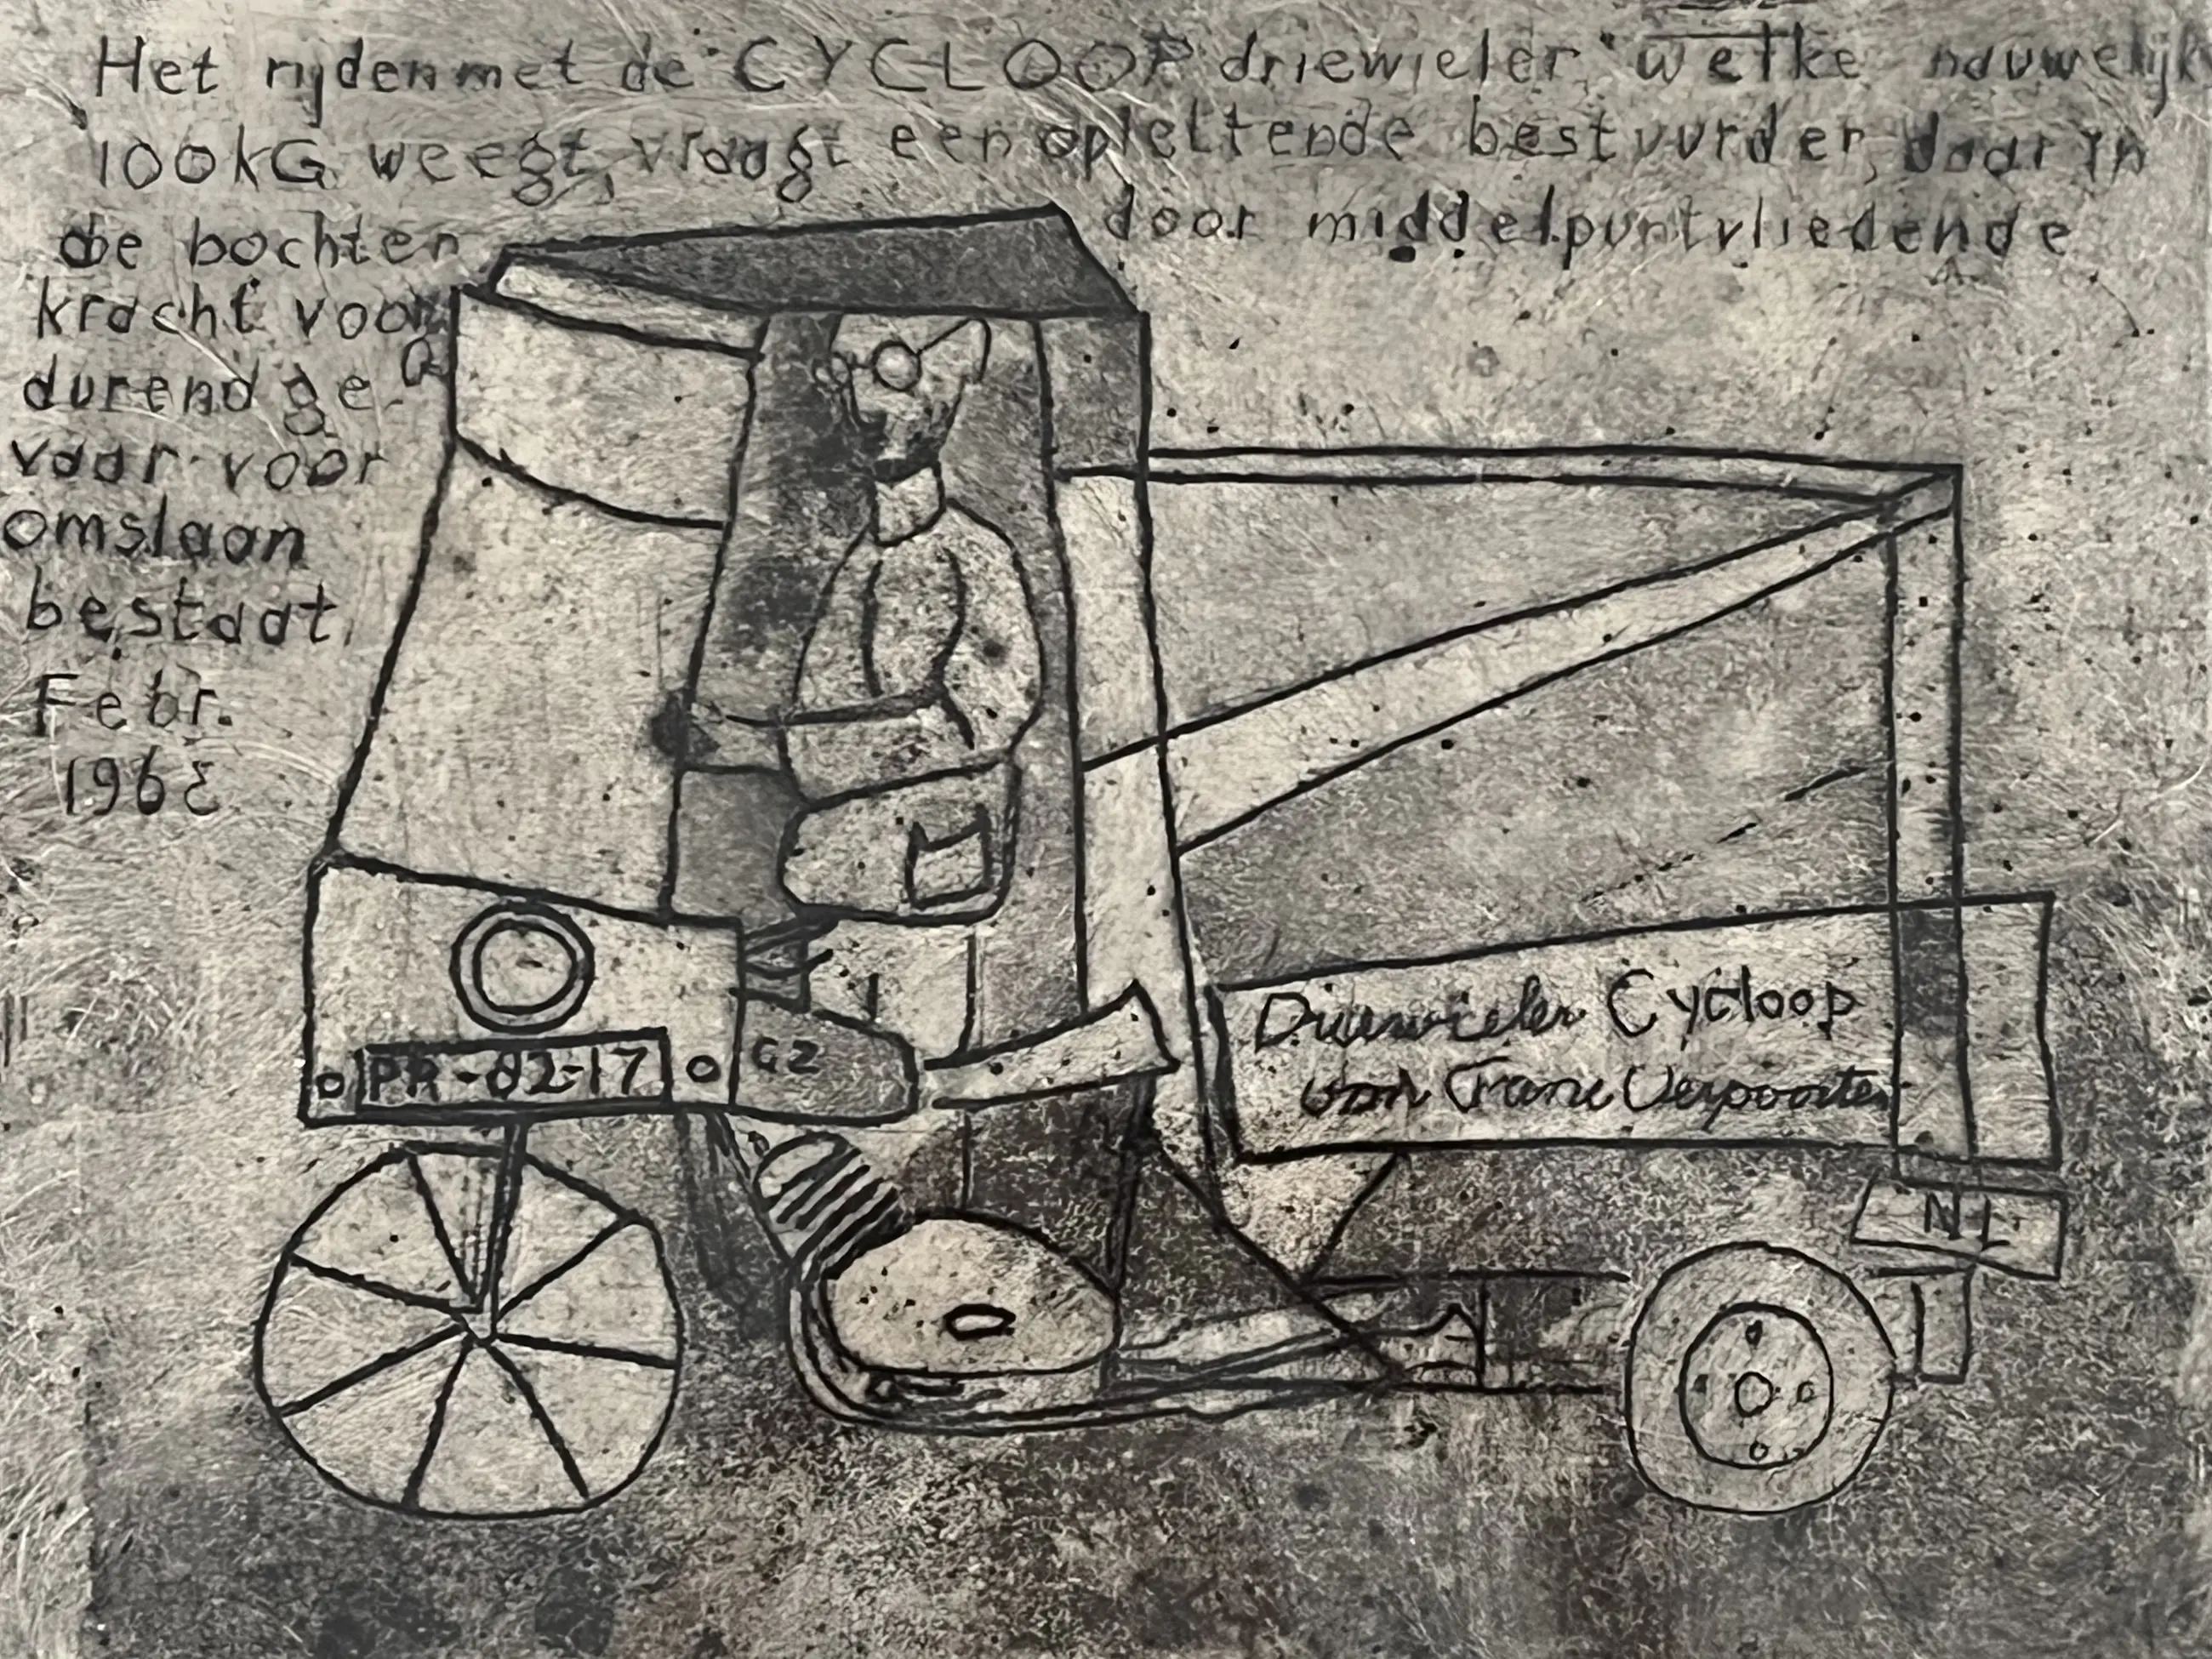 Het rijden met de CYCLOOP driewieler welke nauwelijk
100kG weegt, vraagt een oplettende bestuurder, daar in
de bochten door middelpuntvliedende
kracht voor
durend ge-
vaar voor
omslaan
bestaat.
Febr.
1963
Driewieler Cycloop
van Frans Verpoorten
PR-82-17
GZ
NL